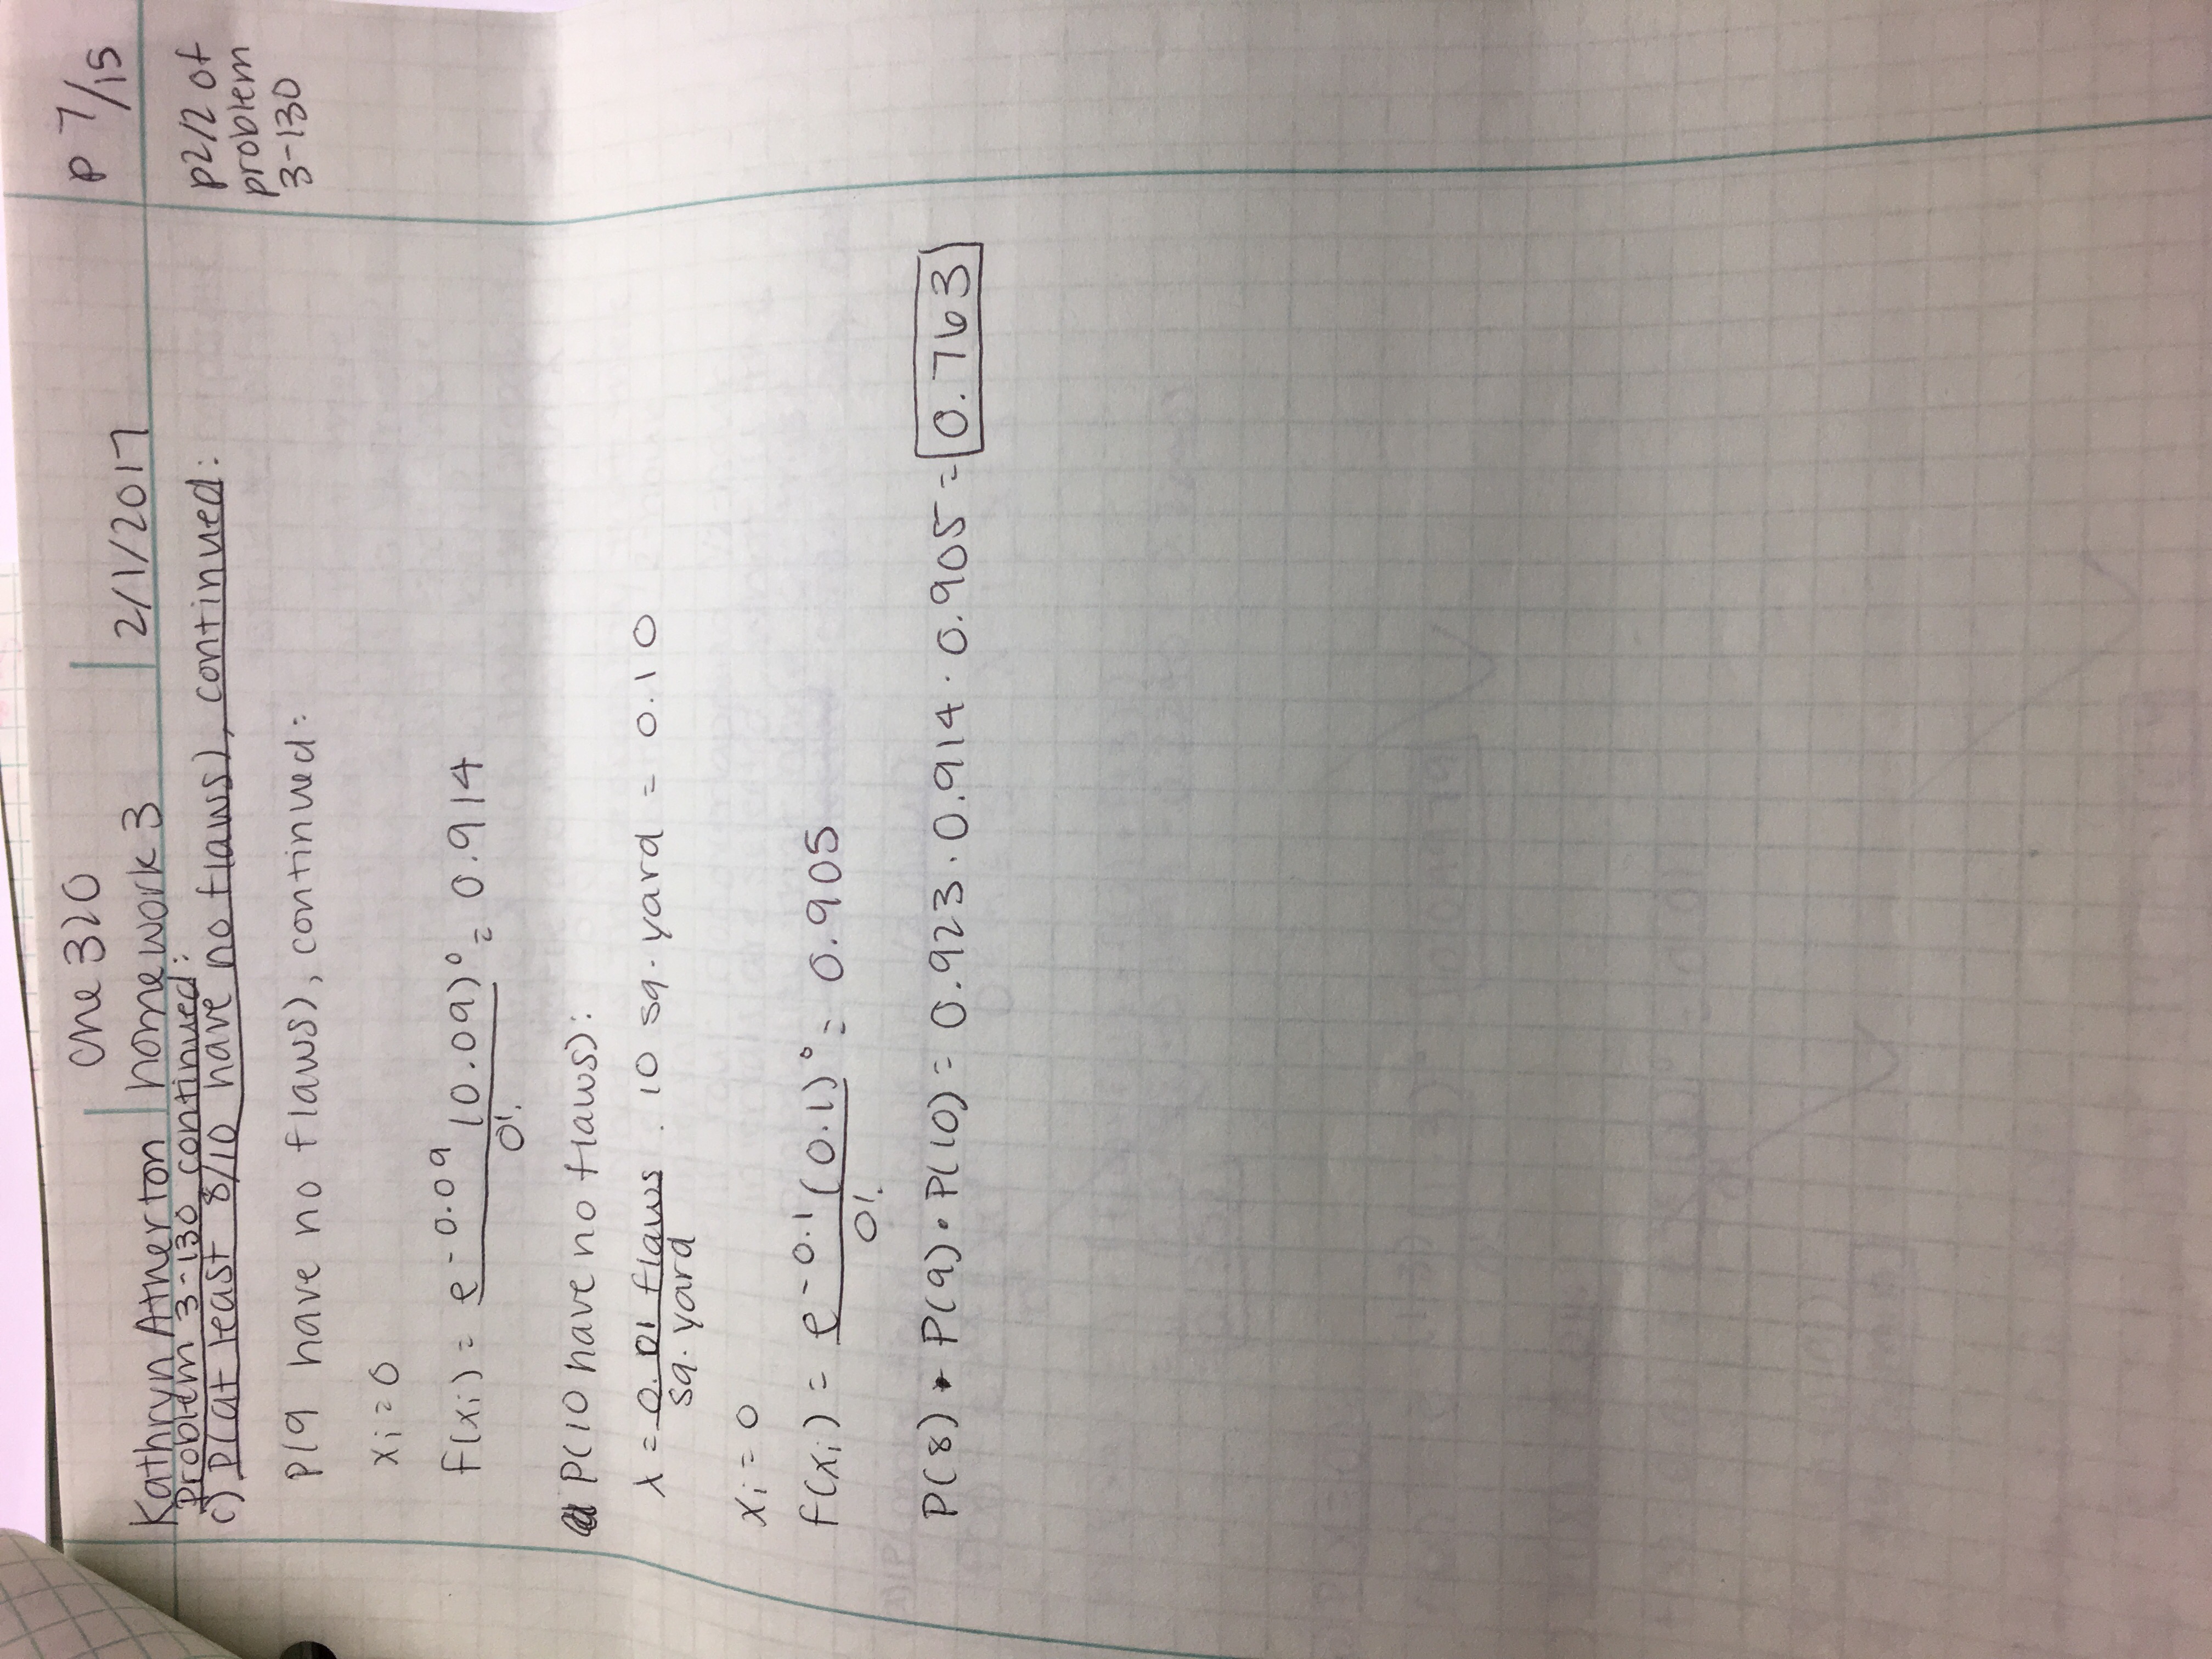 che 320
p 7/15
Kathryn Atherton homework 3 2/1/2017
Problem 3-130, continued:
c) P(at least 8/10 have no flaws), continued:
p2/2 of
problem
3-130
P(9 have no flaws), continued:
xi = 0
f(xi) = e^-0.09 (0.09)^0 / 0! = 0.914
P(10 have no flaws):
λ = 0.01 flaws / sq. yard · 10 sq. yard = 0.10
xi = 0
f(xi) = e^-0.1 (0.1)^0 / 0! = 0.905
P(8) · P(9) · P(10) = 0.923 · 0.914 · 0.905 = 0.763